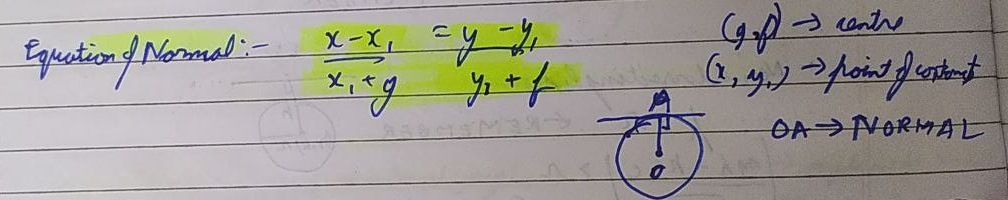 Equation of Normal :- x - x₁ / x₁ + g = y - y₁ / y₁ + f
(g, f) → centre
(x, y₁) → point of contact
A
O
OA → NORMAL